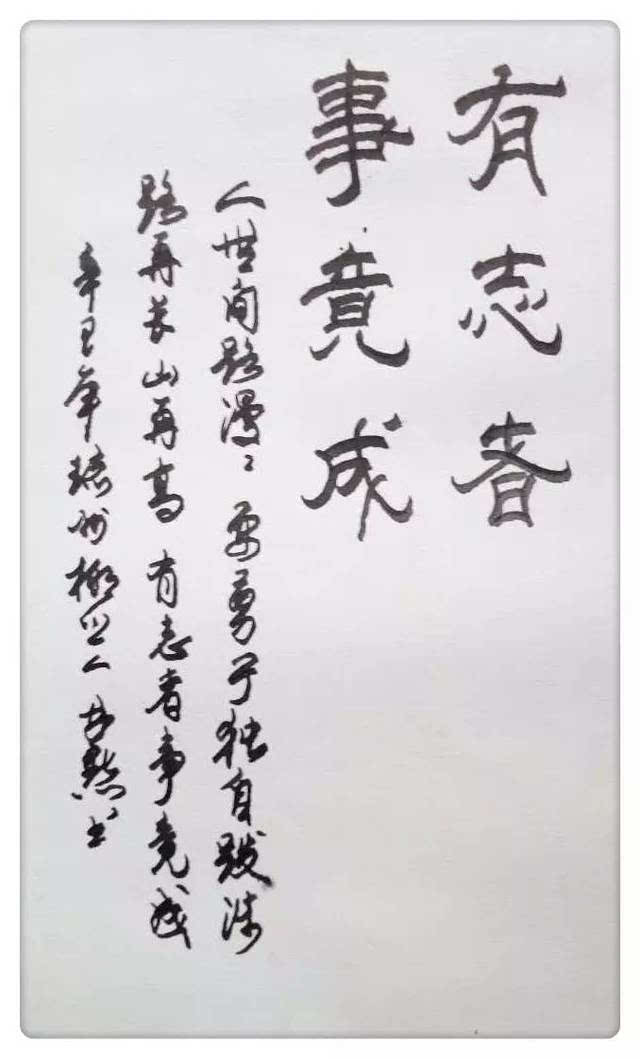 有志者
事竟成
人世间路漫〻要勇于独自跋涉
路再长山再高有志者事竟成
辛丑年 人 书